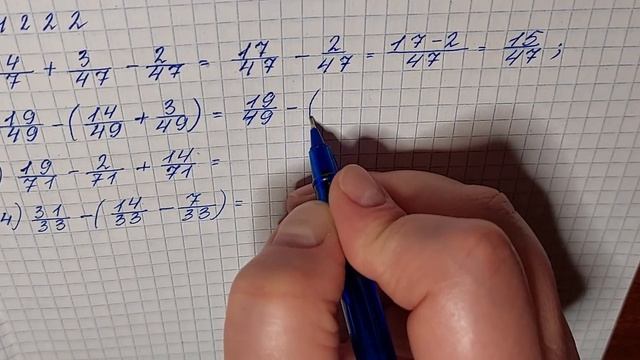 1222
4/7 + 3/47 - 2/47 = 17/47 - 2/47 = 17-2/47 = 15/47 ;
19/49 - (14/49 + 3/49) = 19/49 - (
) 19/71 - 2/71 + 14/71 =
4) 31/33 - (14/33 - 7/33) =